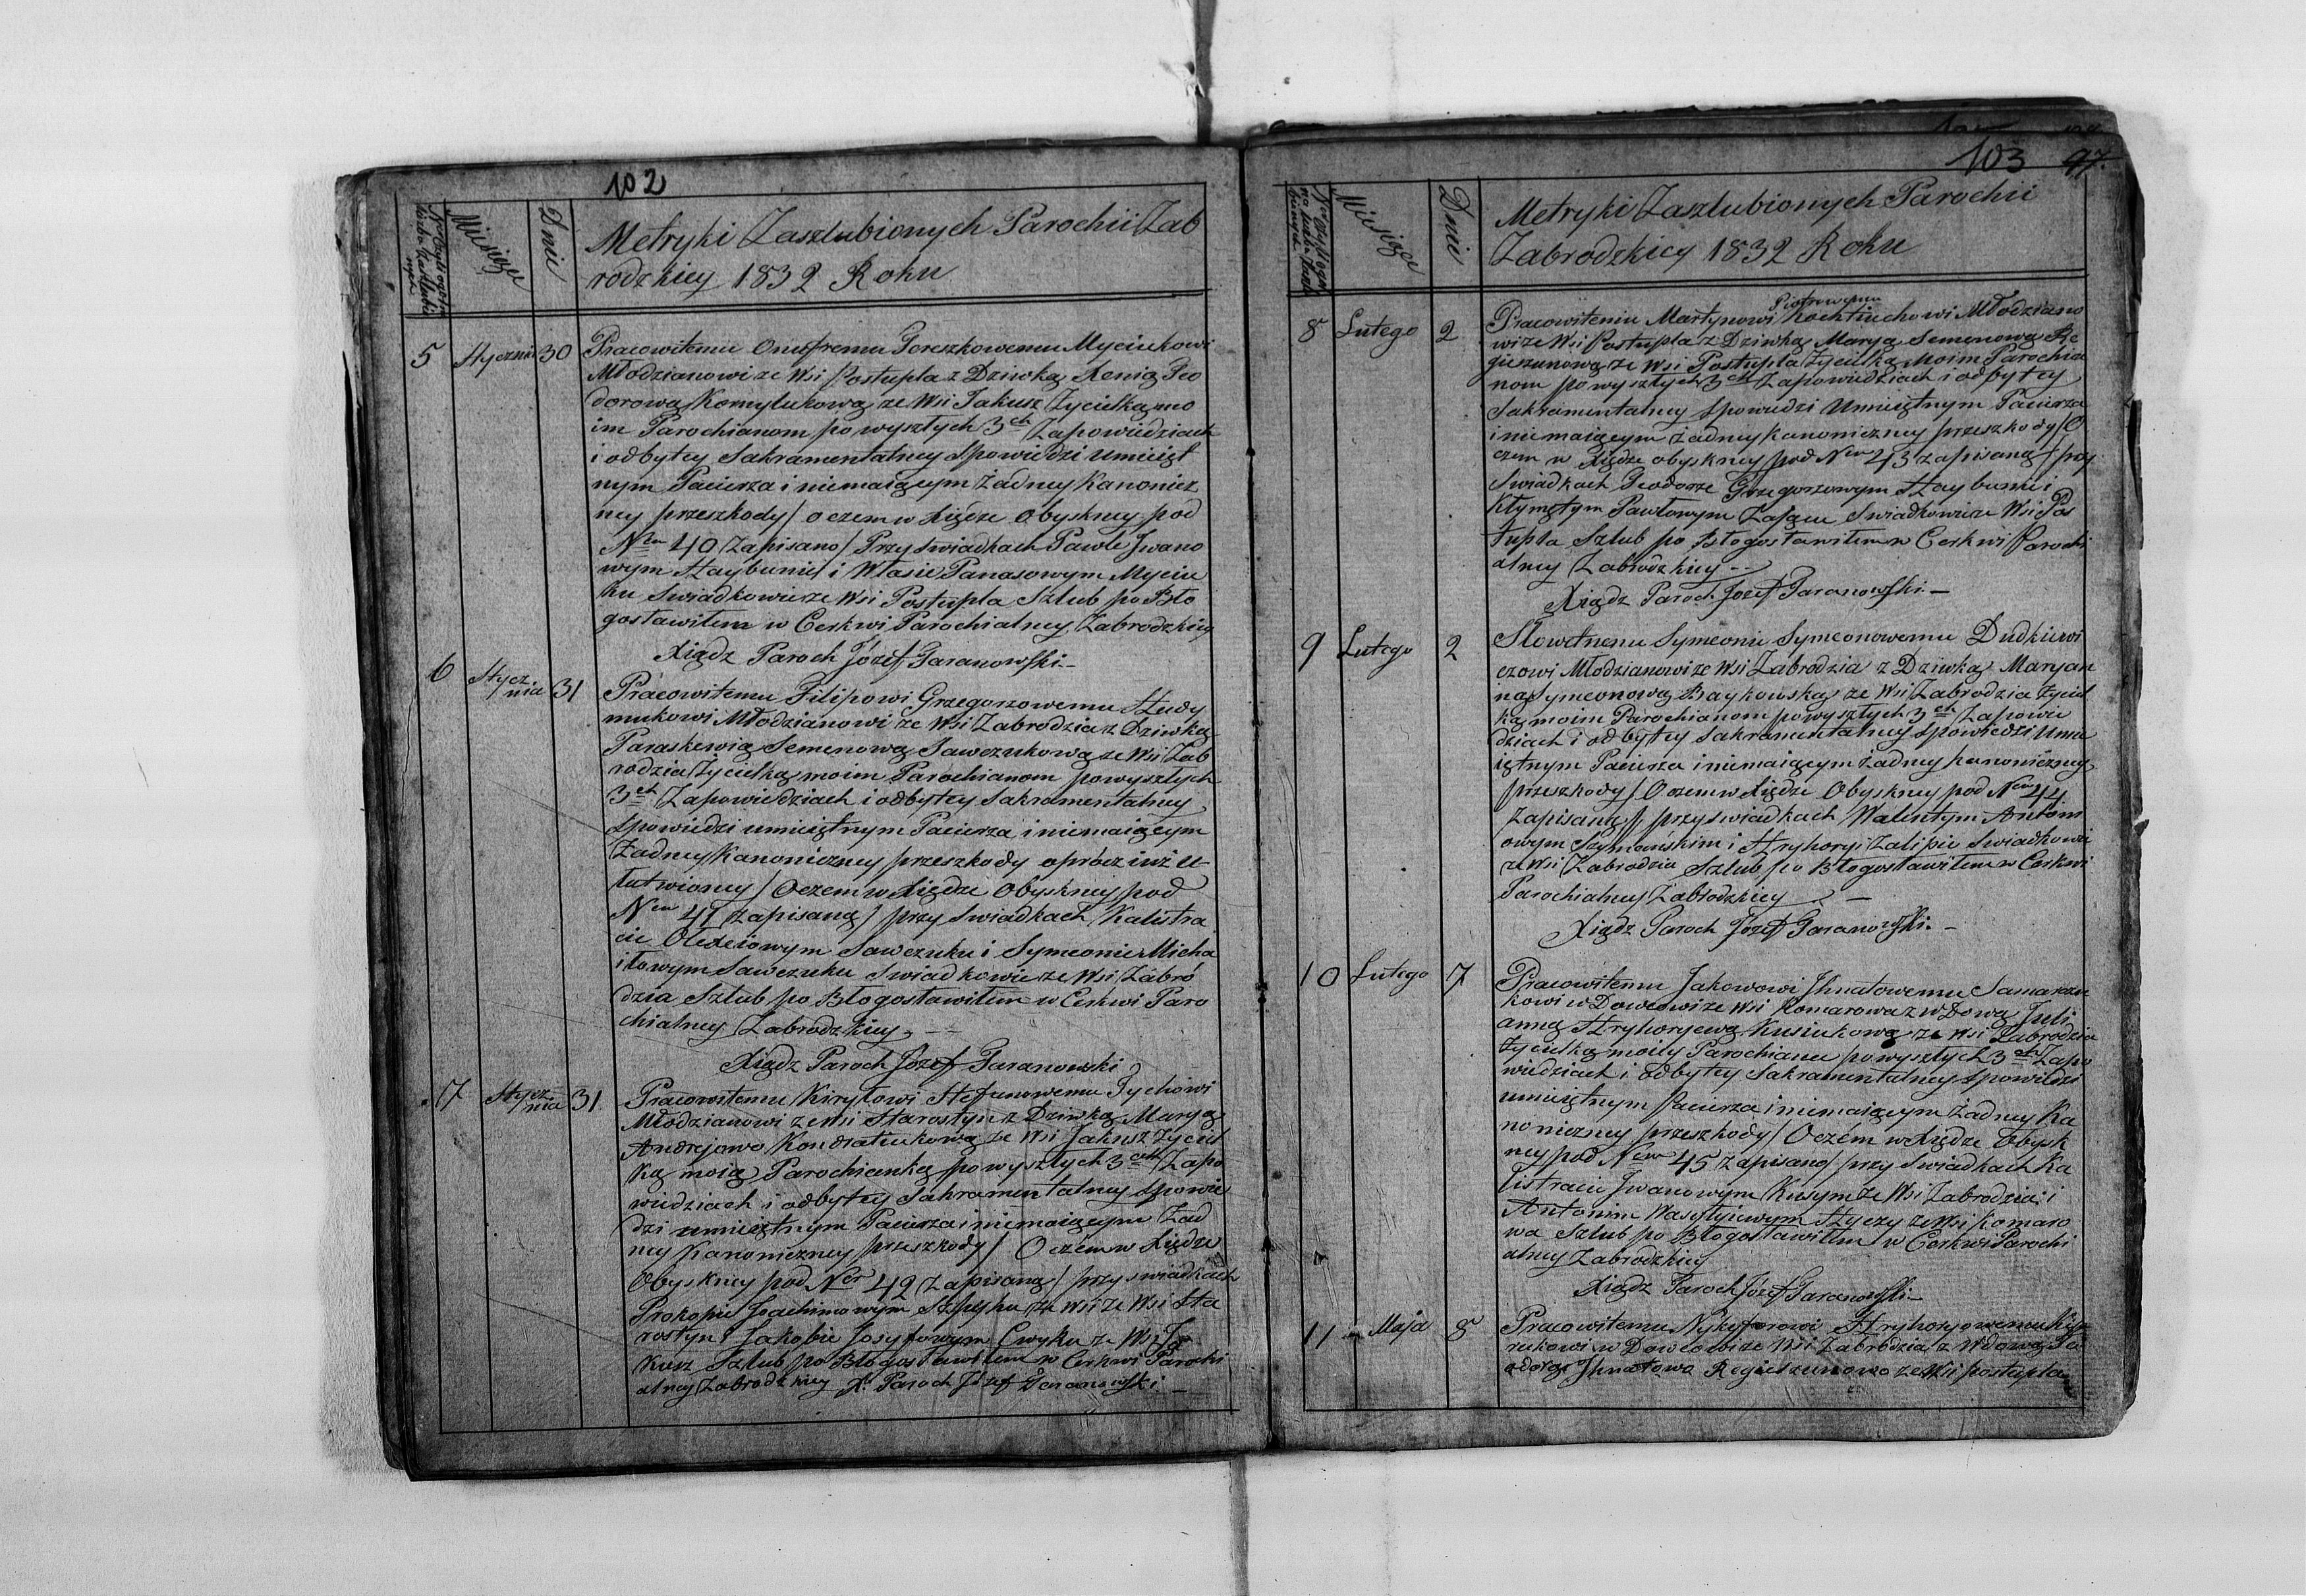 102
Miesiąca
Dnie
Metryki Zaszlubionych Parochii Zab
rodzkiey 1832 Roku
5 Stycznia 30 Pracowitemu Onufremu Tereszkowemu Myciukowi
Młodzianowi ze Wsi Postupla z Dziwką Xenią Teo
dorową Kornylukową ze Wsi Jakusz Życielką mo
im Parochianom po wyszłych 3ch Zapowiedziach
i odbytey Sakramentalney Spowiedzi umieięt
nym Pacierza i niemaiącym żadney Kanonicz
ney przeszkody / o czem w Xiędze Obyskney pod
Nem 40 Zapisano / Przy Swiadkach Pawle Iwano
wym Haybunie i Własie Panasowym Myciu
ku Swiadkowie ze Wsi Postupla Szlub po Bło
gosławiłem w Cerkwi Parochialney Zabrodzkiey
Xiądz Paroch Józef Taranowski
6 Stycz
nia 31 Pracowitemu Filipowi Grzegorzowemu
mukowi Młodzianowi ze Wsi Zabrodzia z Dziwką
Paraskewią Semenową Sawczukową ze Wsi Zab
rodzia Życielką moim Parochianom po wyszłych
3ch Zapowiedziach i odbytey Sakramentalney
Spowiedzi umieiętnym Pacierza i niemaiącym
Żadney Kanoniczney przeszkody oprócz iuż u
łatwioney / O czem w Xiędze Obyskney pod
Nem 41 zapisaną / przy Swiadkach Kalistra
cie Olexiowym Sawczuku i Symeonie Micha
iłowym Sawczuku Swiadkowie ze Wsi Zabro
dzia Szlub po Błogosławiłem w Cerkwi Paro
chialney Zabrodzkiey
Xiądz Paroch Józef Taranowski
7 Stycz
nia 31 Pracowitemu Kiryłowi Stefanowemu Tychowi
Młodzianowi ze Wsi Starostyn z Dziwką Maryą
Andrejowo Kondratiukową ze Wsi Jakusz Życiel
ką moią Parochianką po wyszłych 3ch Zapo
wiedziach i odbytey Sakramentalney Spowie
dzi umieiętnym Pacierza i niemaiącym Żad
ney Kanoniczney przeszkody / O czem w Xiędze
Obyskney pod Ner 42 Zapisaną / przy swiadkach
Prokopie Joachimowym ze Wsi ze Wsi Sta
rostyn i Jakobie Josyfowym Cwyku ze Wsi Ja
kusz Szlub po Błogosławiłem w Cerkwi Parochi
alney Zabrodzkiey X. Paroch Józef Taranowski
103 97.
Miesiąca
Dnie
Metryki Zaszlubionych Parochii
Zabrodzkiey 1832 Roku
Piotrowemu
8 Lutego 2 Pracowitemu Martynowi Kochtiuchowi Młodziano
wi ze Wsi Postupla z Dziwką Maryą Semenową Re
gieszunową ze Wsi Postupla Życielką moim Parochia
nom po wyszłych 3ch Zapowiedziach i odbytey
Sakramentalney Spowiedzi Umieiętnym Pacierza
i niemaiącym żadney Kanoniczney przeszkody / O
czem w Xiędze obyskney pod Nem 43 zapisaną / przy
Swiadkach Teodorze Grzegorzowym Haybunie i
Kłymętym Pawłowym Swiadkowie ze Wsi Pos
tupla Szlub po Błogosławiłem w Cerkwi Parochi
alney Zabrodzkiey
Xiądz Paroch Józef Taranowski
9 Lutego 2 Sławetnemu Symeonu Symeonowemu Dudkiewi
czowi Młodzianowi ze Wsi Zabrodzia z Dziwką Maryan
ną Symeonową Baykowską ze Wsi Zabrodzia Życiel
ką moim Parochianom po wyszłych 3ch Zapowie
dziach i odbytey Sakramentalney Spowiedzi Umie
iętnym Pacierza i niemaiącym żadney kanoniczney
przeszkody / O czem w Xiędze Obyskney pod Nem 44
Zapisaną / przy swiadkach Walentym Antoni
owym Szymańskim i Hryhoryi Zalipie Swiadkowie
ze Wsi Zabrodzia Szlub po Błogosławiłem w Cerkwi
Parochialney Zabrodzkiey
Xiądz Paroch Józef Taranowski
10 Lutego 7 Pracowitemu Jakowowi Ihnatowemu Samarczu
kowi w Dowcowi ze Wsi Komarowa z wDową Juli
anną Hryhoryewą Kusiukową ze Wsi Zabrodzia
Życielką moiey Parochianu po wyszłych 3ch Zapo
wiedziach i odbytey Sakramentalney Spowiedzi
umieiętnym Pacierza i niemaiącym żadney Ka
noniczney przeszkody / O czém w Xiędze Obysk
ney pod Nem 45 Zapisano / przy Swiadkach Ka
listracie Iwanowym Kusym ze Wsi Zabrodzia i
Antonim Wasylyiewym Hyczy ze Wsi Komaro
wa Szlub po Błogosławiłem w Cerkwi Parochi
alney Zabrodzkiey
Xiądz Paroch Józef Taranowski
11 Maja 8 Pracowitemu Nykyforowi Hryhoryowemu
rukowi w Dowcowi ze Wsi Zabrodzia z Wdową
Ihnatowa Regieszunowo ze Wsi Postupla